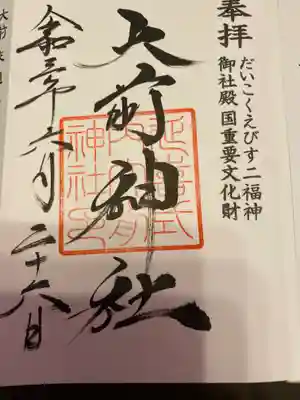 奉拝
だいこくえびす二福神
御社殿国重要文化財
大前神社
延喜式内大前神社印
令和三年六月二十六日